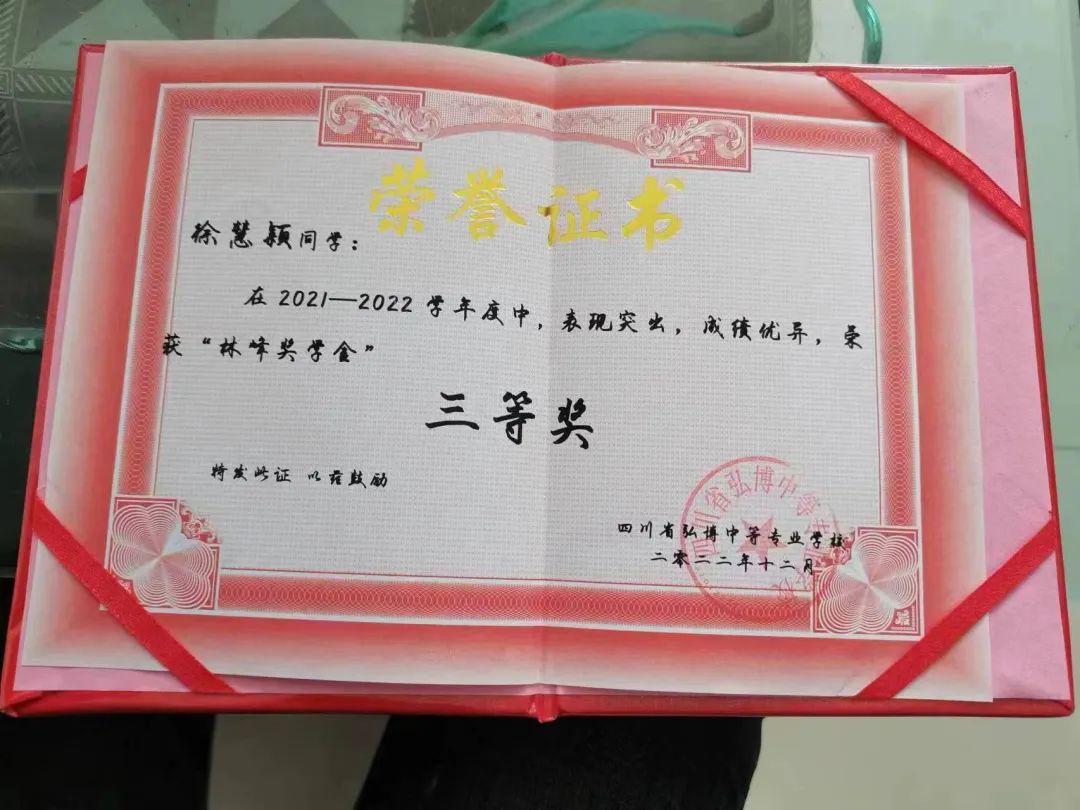 荣誉证书
徐慧颖同学：
在2021—2022学年度中，表现突出，成绩优异，荣
获“林峰奖学金”
三等奖
特发此证 以兹鼓励
四川省弘博中等专业学校
四川省弘博中等专业学校
二零二二年十二月